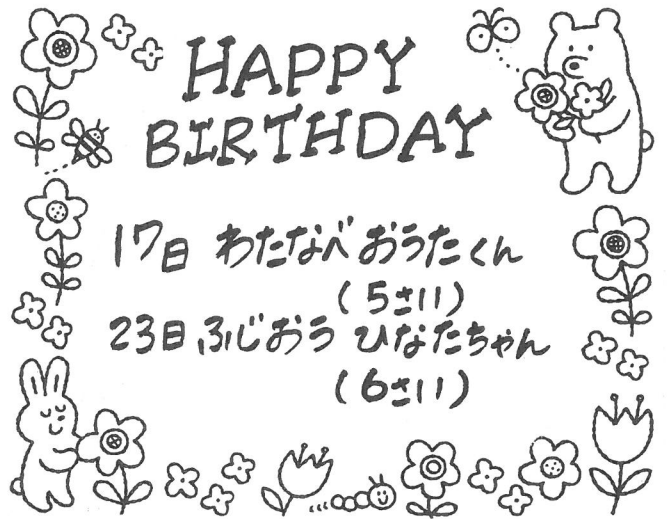 HAPPY
BIRTHDAY
17日 わたなべ おうたくん
(5さい)
23日 ふじおう ひなたちゃん
(6さい)